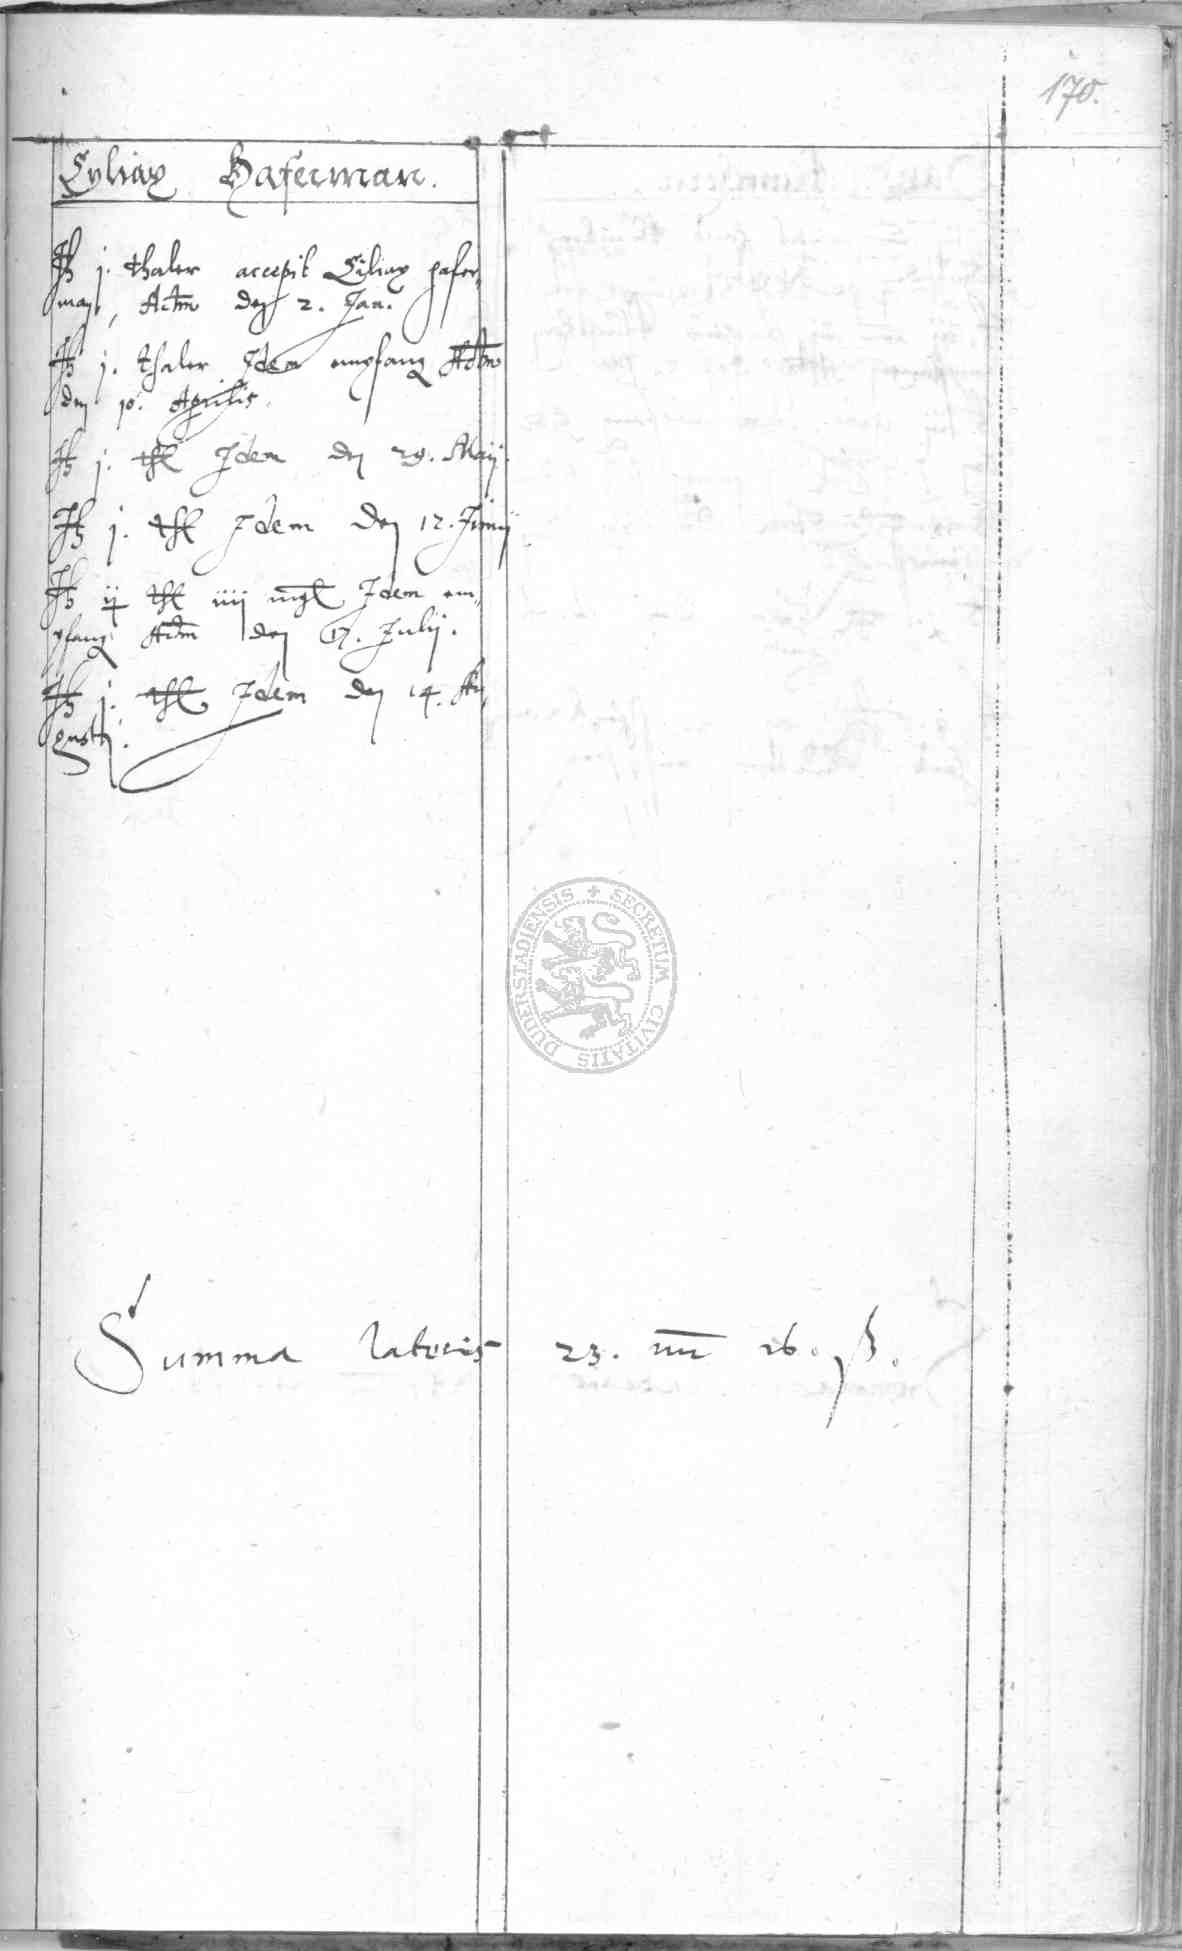 170.
Cyliax Haferman.
It j. thaler accepit Ciliax hafer-
man, Actm den 2. Jan.
It j. thaler Idem empfang Actm
den 10. Aprilis.
It j. thl Idem den 29. Maij.
It j. thl Idem den 12. Junij
It ij thl iiij mgl Idem em-
pfang Actm den 17. Julij.
It j. thl Idem den 14. Au-
gusti.
SECRETUM CIVITATIS DUDERSTADIENSIS
Summa lateris 23. m 16. ß.